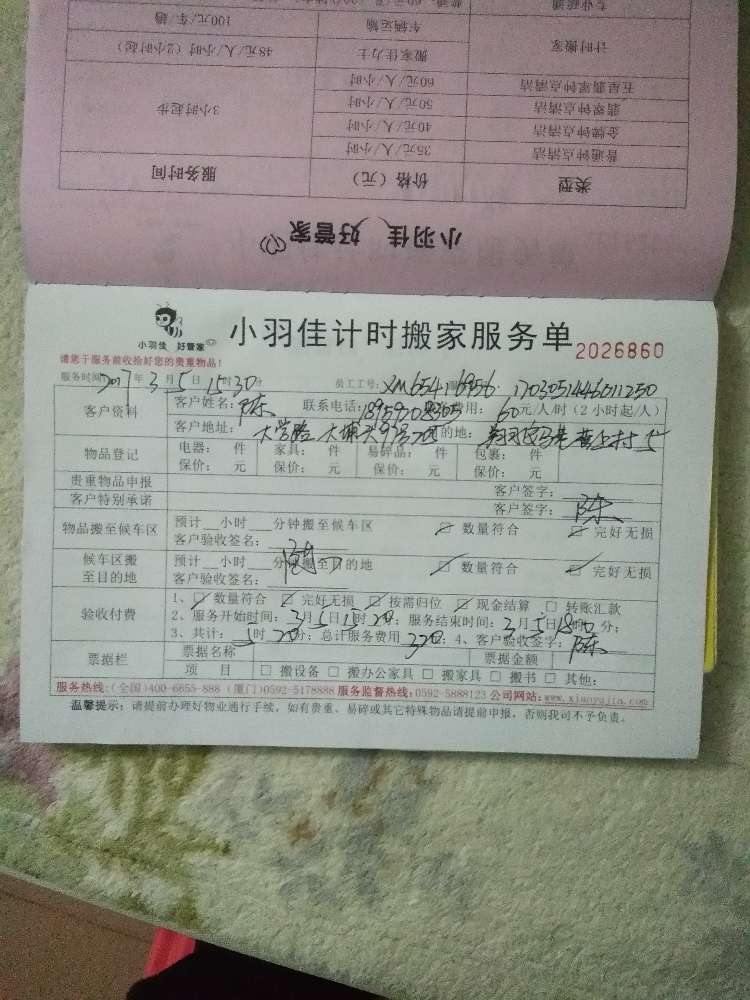 小羽佳 好管家
类型 价格（元） 服务时间
普通钟点清洁 35元/人/小时 3小时起步
金牌钟点清洁 40元/人/小时
翡翠钟点清洁 50元/人/小时
五星翡翠钟点清洁 60元/人/小时
计时搬家 搬家佳力士 48元/人/小时（2小时起）
车辆运输 100元/车/趟
专业疏通
小羽佳 好管家
小羽佳计时搬家服务单 2026860
请您于服务前收拾好您的贵重物品！
服务时间 2017年3月5日15时30分 员工工号：XM654 16956 1703051446011250
客户资料 客户姓名：陈 联系电话：18959208365 费用：60元/人/时（2小时起/人）
客户地址： 大学路 大埔头9号 的地：
物品登记 电器： 件 家具： 件 易碎品： 件 包裹： 件
保价： 元 保价： 元 保价： 元 保价： 元
贵重物品申报 客户签字：
客户特别承诺 客户签字：陈
物品搬至候车区 预计__小时__分钟搬至候车区 ☑ 数量符合 ☑ 完好无损
客户验收签名：
候车区搬至目的地 预计__小时__分钟搬至目的地 ☑ 数量符合 ☑ 完好无损
客户验收签名：陈
验收付费 1、☑ 数量符合 ☑ 完好无损 ☑ 按需归位 ☑ 现金结算 □ 转账汇款
2、服务开始时间：3月5日 时20分；服务结束时间：3月5日18时 分；
3、共计：5时20分；总计服务费用320；4、客户验收签字：陈
票据栏 票据名称 票据金额
项目 □ 搬设备 □ 搬办公家具 □ 搬家具 □ 搬书 □ 其他：
服务热线：(全国)400-6655-888 (厦门)0592-5178888 服务监督热线：0592-5888123 公司网站：www.xiaoyujia.com
温馨提示：请提前办理好物业通行手续，如有贵重、易碎或其它特殊物品请提前申报，否则我司不予负责。